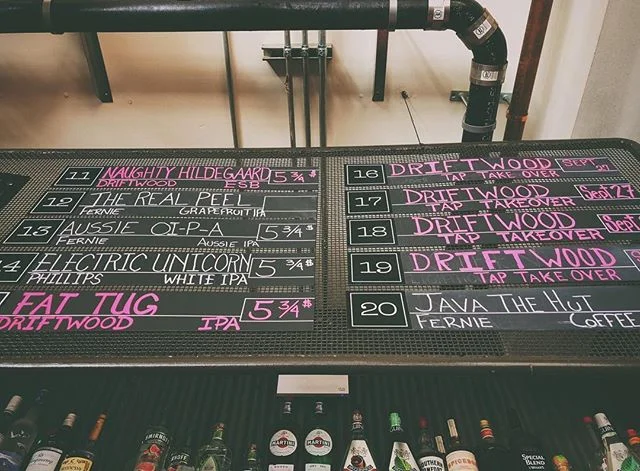 11 NAUGHTY HILDEGAARD 5 3/4 $
DRIFTWOOD ESB
12 THE REAL PEEL
FERNIE GRAPEFRUIT IPA
13 AUSSIE OI-P-A 5 3/4 $
FERNIE AUSSIE IPA
14 ELECTRIC UNICORN 5 3/4 $
PHILLIPS WHITE IPA
FAT TUG 5 3/4 $
DRIFTWOOD IPA
16 DRIFTWOOD SEPT 27
TAP TAKE OVER
17 DRIFTWOOD SEPT 27
TAP TAKEOVER
18 DRIFTWOOD
TAP TAKEOVER
19 DRIFTWOOD
TAP TAKE OVER
20 JAVA THE HUT
FERNIE COFFEE
SMIRNOFF
MARTINI
MARTINI
SOUTHERN
SPECIAL
BLEND